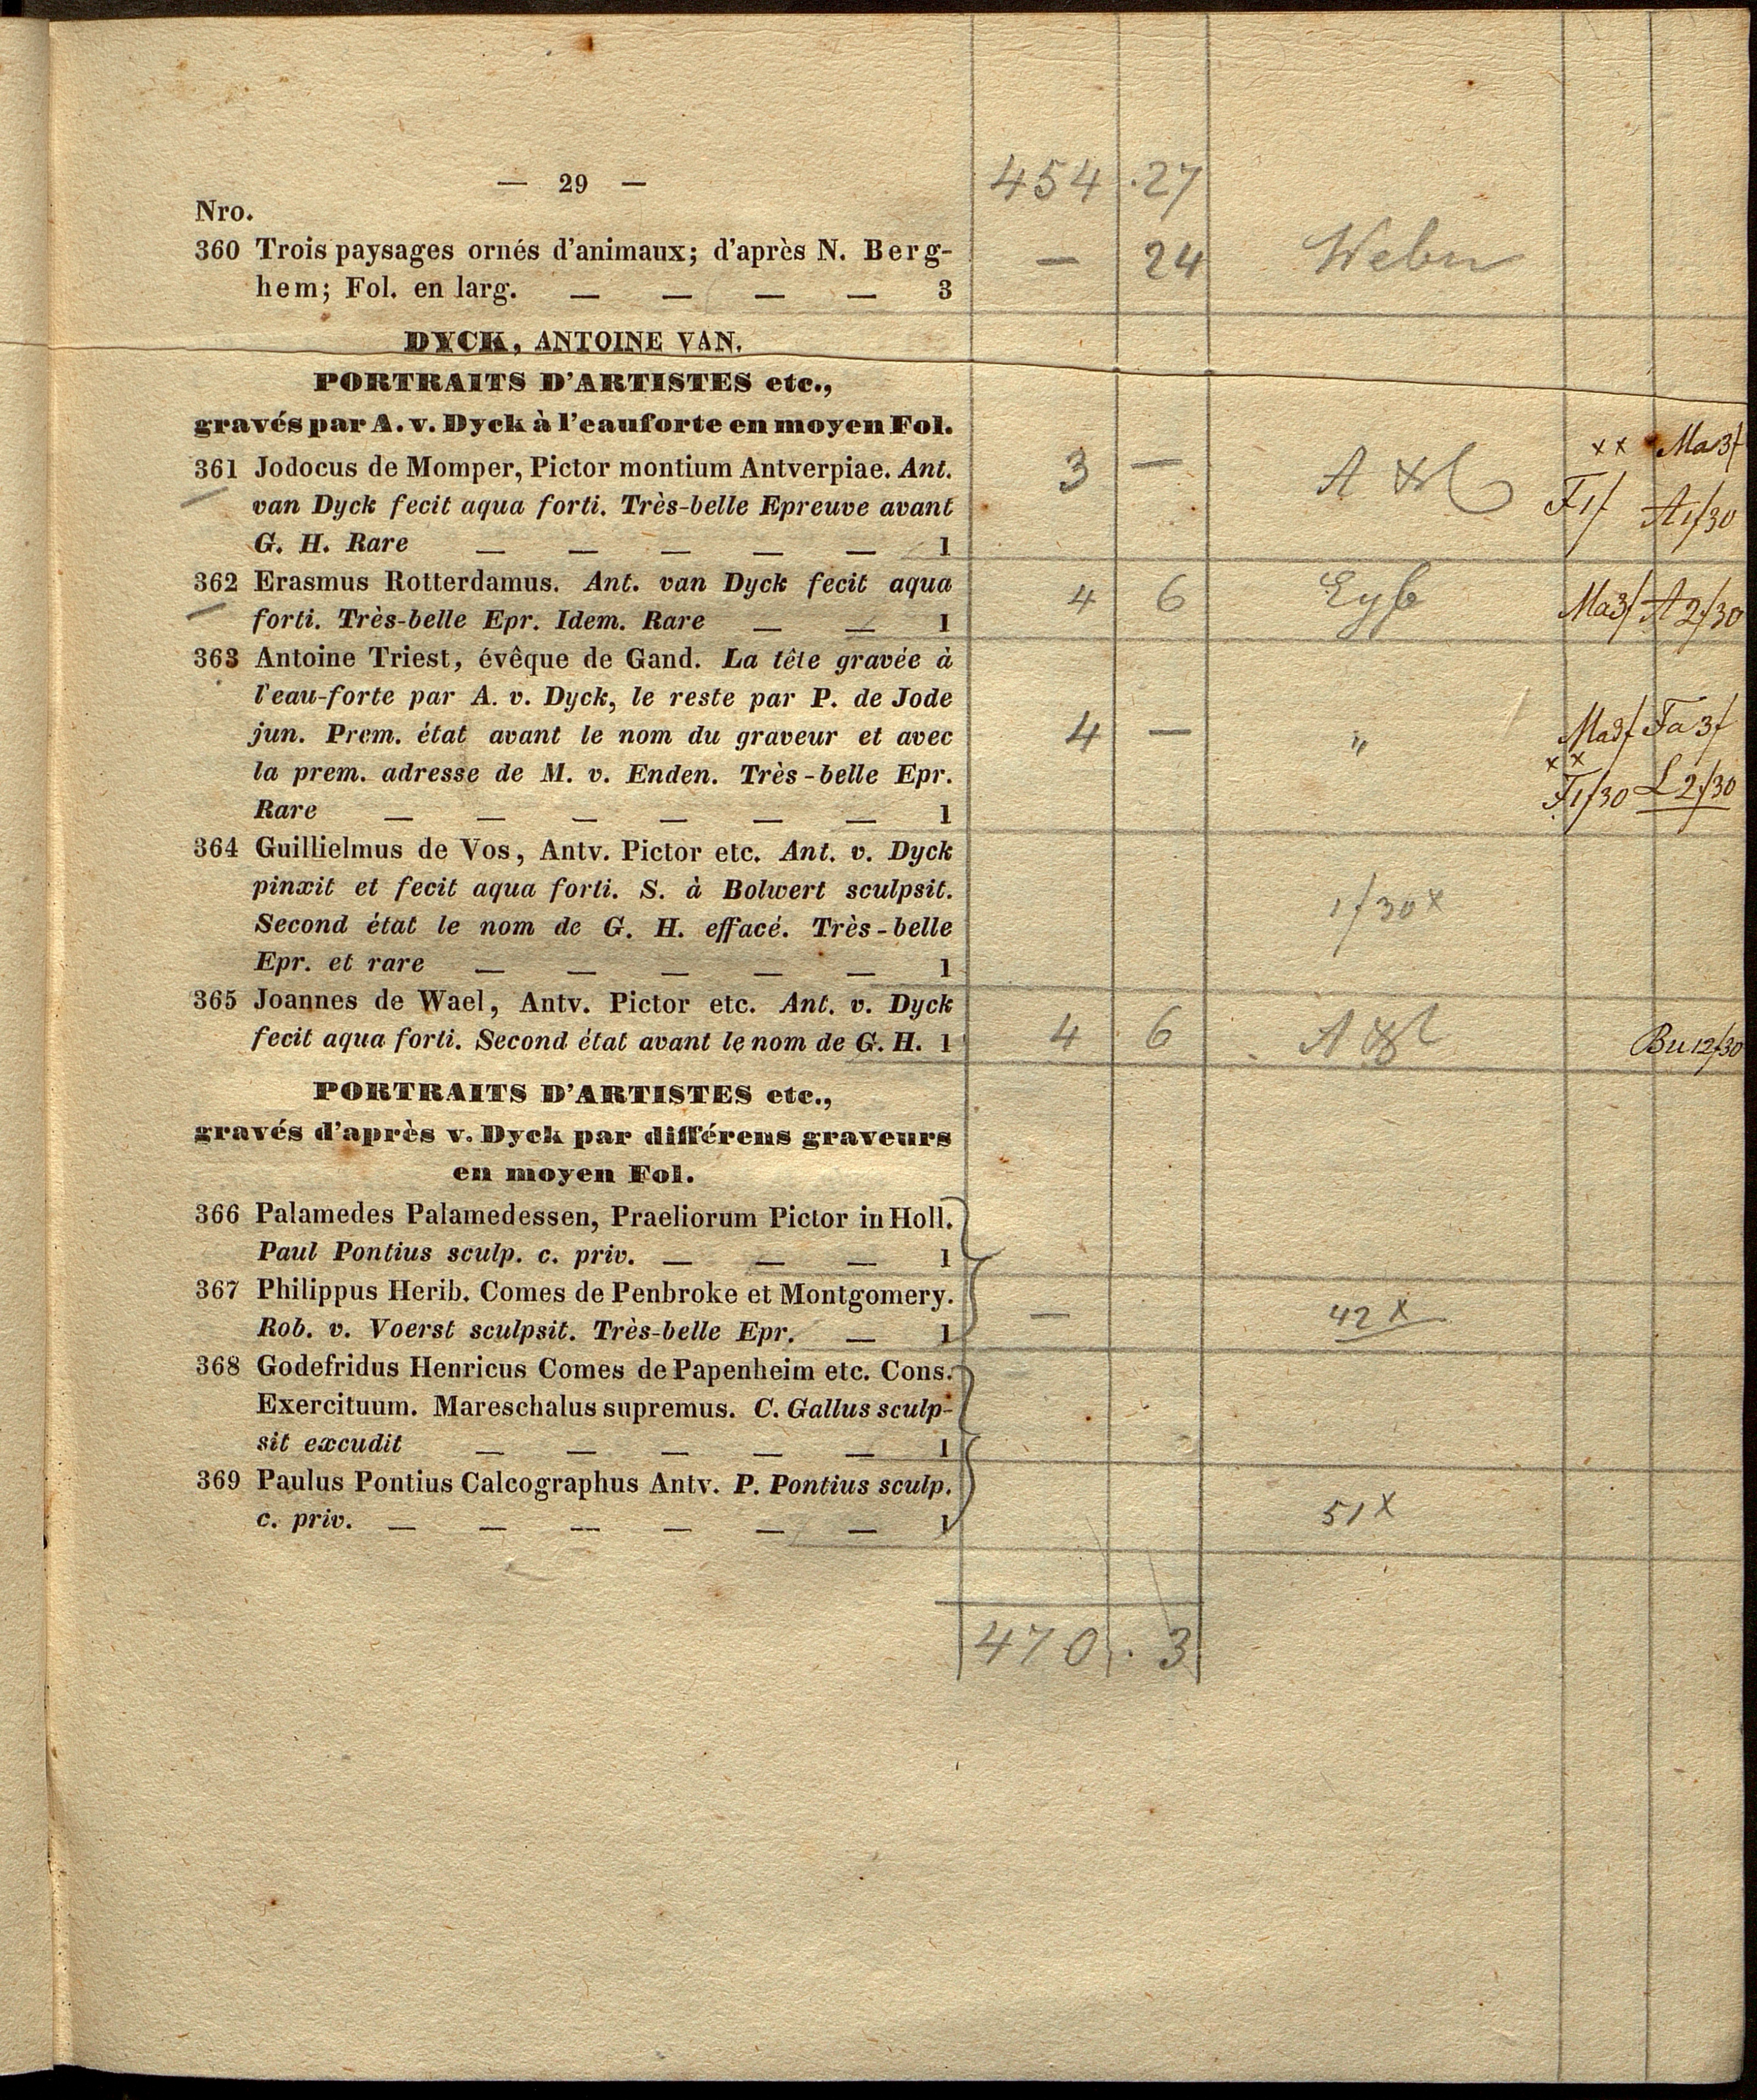 — 29 —
454 . 27
Nro.
360 Trois paysages ornés d'animaux; d'après N. Berg-
hem; Fol. en larg. — — — — 3
— 24
DYCK, ANTOINE VAN.
PORTRAITS D'ARTISTES etc.,
gravés par A. v. Dyck à l'eauforte en moyen Fol.
361 Jodocus de Momper, Pictor montium Antverpiae. Ant.
van Dyck fecit aqua forti. Très-belle Epreuve avant
G. H. Rare — — — — — 1
3 —
x x Ma3f
F1f A1f30
362 Erasmus Rotterdamus. Ant. van Dyck fecit aqua
forti. Très-belle Epr. Idem. Rare — — 1
4 6 Ma3f A2f30
363 Antoine Triest, évêque de Gand. La tête gravée à
l'eau-forte par A. v. Dyck, le reste par P. de Jode
jun. Prem. état avant le nom du graveur et avec
la prem. adresse de M. v. Enden. Très-belle Epr.
Rare — — — — — — 1
4 — " Ma3f Fa3f
x x
F1f30 L2f30
364 Guillielmus de Vos, Antv. Pictor etc. Ant. v. Dyck
pinxit et fecit aqua forti. S. à Bolwert sculpsit.
Second état le nom de G. H. effacé. Très-belle
Epr. et rare — — — — — 1
1f30x
365 Joannes de Wael, Antv. Pictor etc. Ant. v. Dyck
fecit aqua forti. Second état avant le nom de G. H. 1
4 6 Bu12f30
PORTRAITS D'ARTISTES etc.,
gravés d'après v. Dyck par différens graveurs
en moyen Fol.
366 Palamedes Palamedessen, Praeliorum Pictor in Holl.
Paul Pontius sculp. c. priv. — — — 1
367 Philippus Herib. Comes de Penbroke et Montgomery.
Rob. v. Voerst sculpsit. Très-belle Epr. — 1
— 42x
368 Godefridus Henricus Comes de Papenheim etc. Cons.
Exercituum. Mareschalus supremus. C. Gallus sculp-
sit excudit — — — — — 1
369 Paulus Pontius Calcographus Antv. P. Pontius sculp.
c. priv. — — — — — — 1
51x
470 . 3